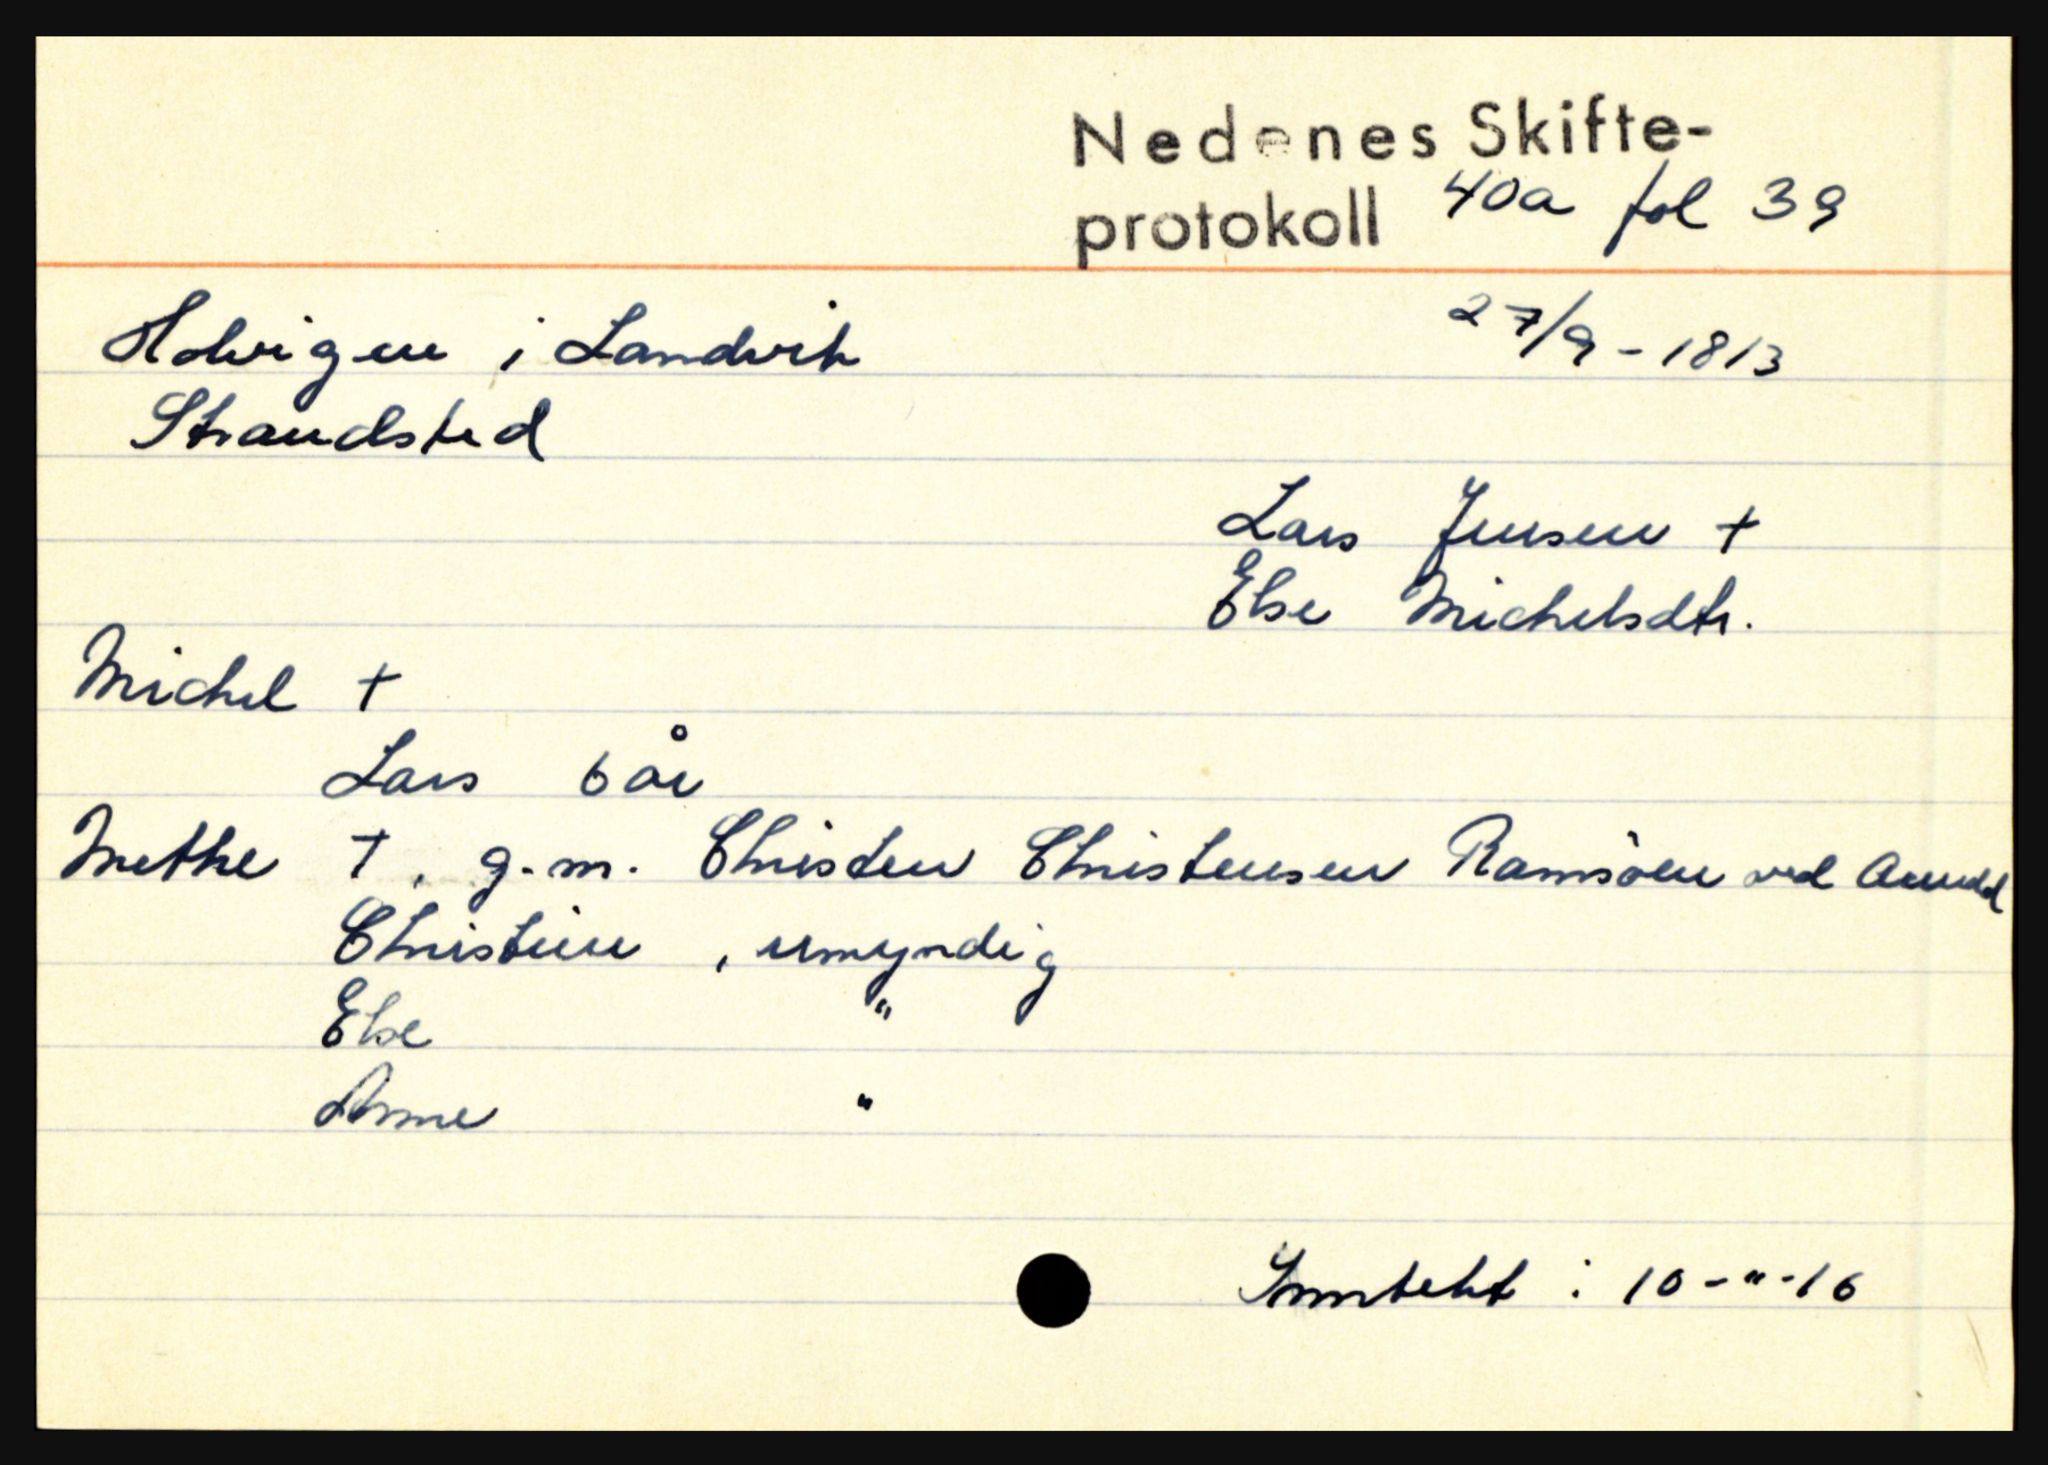 Nedenes Skifte-
protokoll 40a fol 39
Holvigen i Landvik 27/9-1813
Strandsted
Lars Jensen +
Else Michelsdtr.
Michel +
Lars 6 år
Methe +, g.m. Christen Christensen Ramsöen ved Arendal
Christen, umyndig
Else "
Anne "
Inntekt: 10-"-16